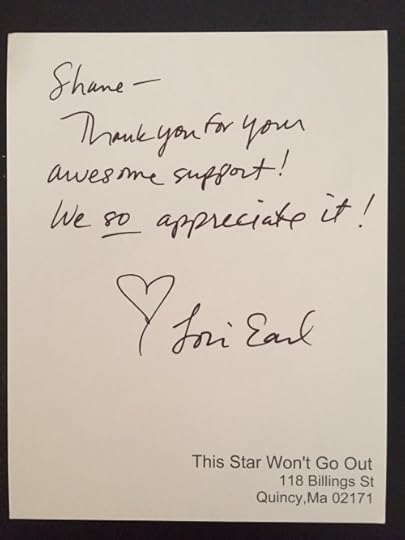 Shane —
Thank you for your
awesome support!
We so appreciate it!
Lori Earl
This Star Won't Go Out
118 Billings St
Quincy,Ma 02171